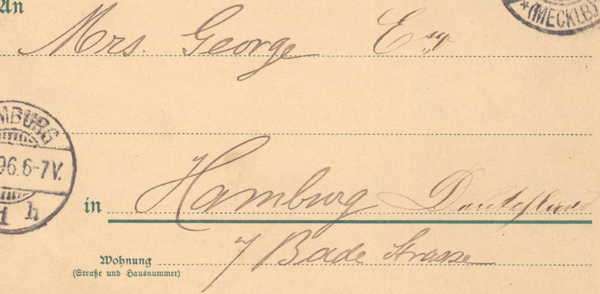 An
*(MECKLB)
Mrs. George Esq
MBURG
96.6-7V.
in Hamburg Deutschland
Wohnung
(Straße und Hausnummer)
7 Bade Strasse